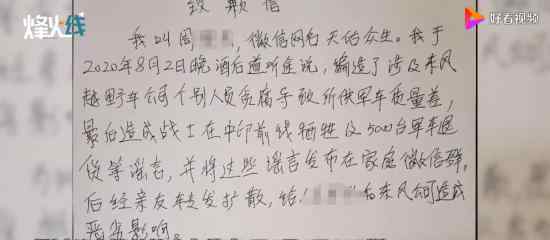 烽火线
好看视频
致歉信
我叫周，微信网名天的众生。我于
2020年8月2日晚酒后道听途说，编造了涉及东风
越野车公司个别人员贪腐导致所供军车质量差，
最后造成战士在中印前线牺牲及500台军车退
货等谣言，并将这些谣言发布在家庭微信群，
后经亲友转发扩散，给和东风公司造成
严重影响